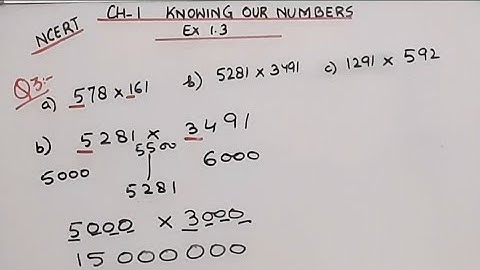 NCERT
CH-1 KNOWING OUR NUMBERS
Ex 1.3
Q3:-
a) 578 × 161 b) 5281 × 3491 c) 1291 × 592
b) 5281 × 3491
5500
5000 6000
5281
5000 × 3000
15000000